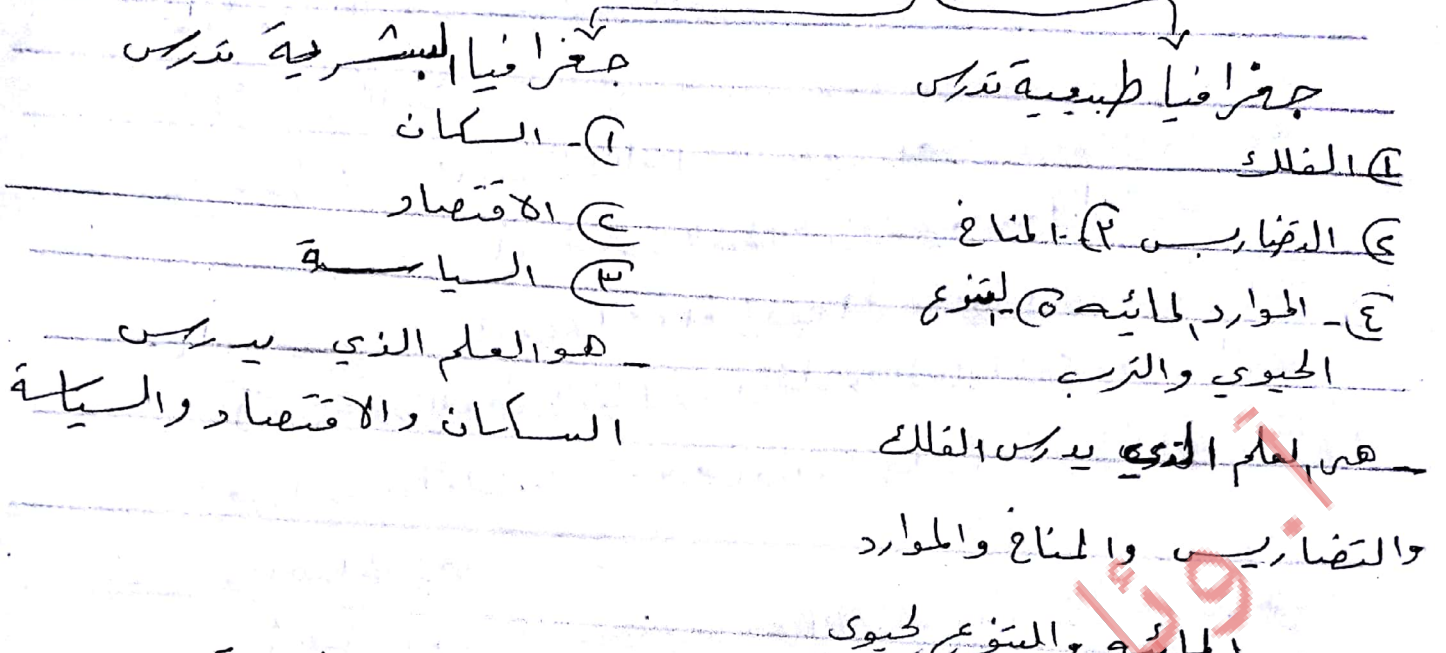 جغرافيا طبيعية تدرس
① الفلك
② التضاريس ③ - المناخ
④ - الموارد المائيه ⑤ التنوع
الحيوي والترب
- هي العلم الذي يدرس الفلك
والتضاريس والمناخ والموارد
المائيه والتنوع لحيوي
جغرافيا البشرية تدرس
① - السكان
② الاقتصاد
③ السياسة
- هو العلم الذي يدرس
السكان والاقتصاد والسياسة
أ. وئا